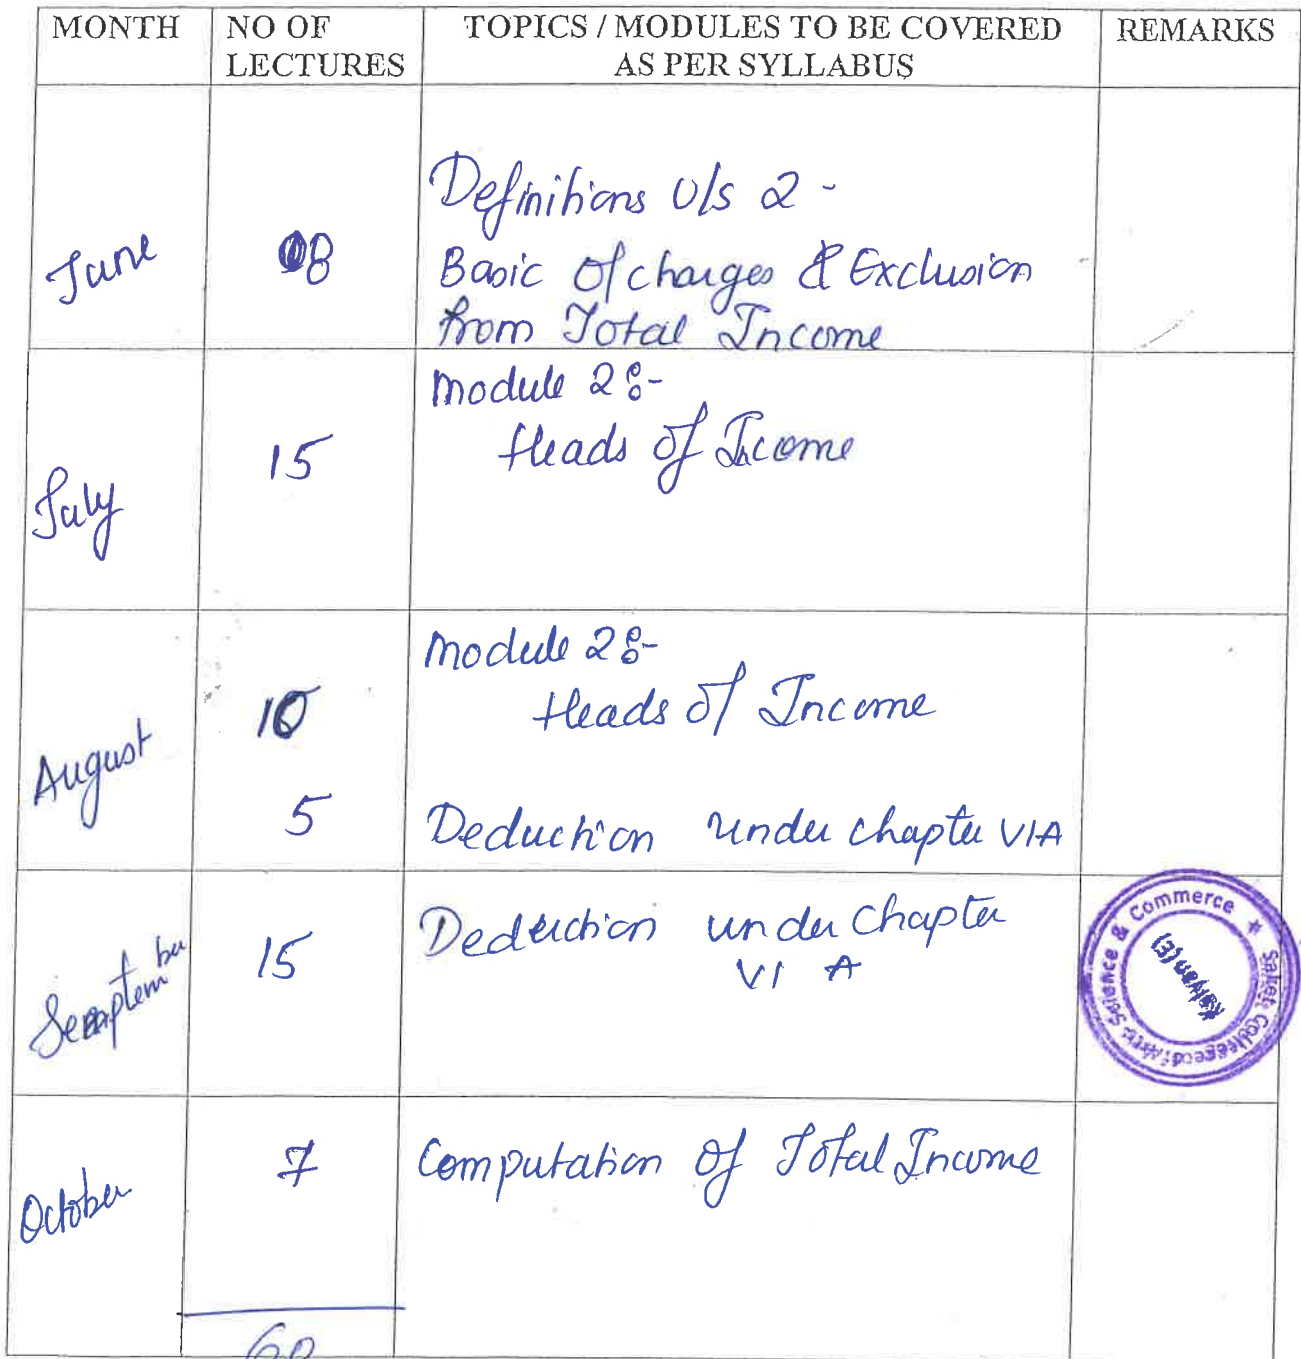 MONTH
NO OF
LECTURES
TOPICS / MODULES TO BE COVERED
AS PER SYLLABUS
REMARKS
June
08
Definitions U/s 2 -
Basic Of charges & Exclusion
from Total Income
July
15
Module 2 :-
Heads of Income
August
10
Module 2 :-
Heads of Income
5
Deduction under chapter VIA
September
15
Deduction under Chapter
VI A
Saket College of Arts Science & Commerce
October
7
Computation of Total Income
60